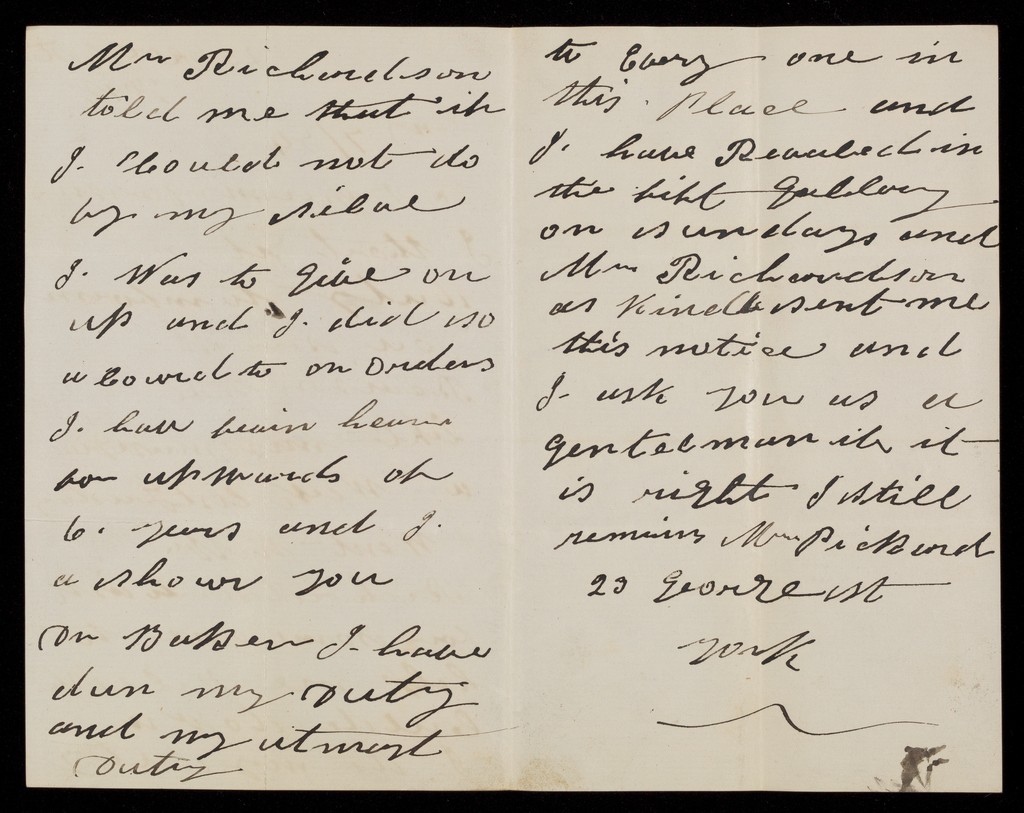 Mrs Richardson
told me that if
I. Could not do
by my
I. Was to give on
up and I. did so
a Courd to on Orders
I. have bein hear
for upwards of
6. years and I.
a shour you
Dr Baker I. have
dun my Duty
and my utmost
Duty
to Every one in
this. Place and
I. have in
the Gallary
on sundays and
Mrs Richardson
as Kindle sent me
this notice and
I. ask you as a
gentelman if it
is right I still
remains Mrs Pickard
23 George st
York